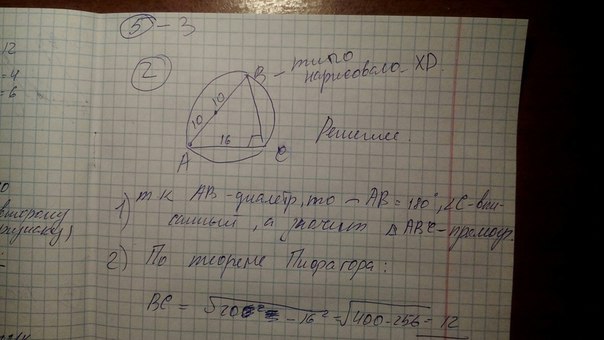 12
=4
=6
5 - 3
2
B - типо
нарисовало XD.
10
10
16
A
C
Решение.
1) т к AB - диаметр, то ⌣ AB = 180°, ∠C - впи-
санный, а значит △ ABC - прямоуг.
2) По теореме Пифагора:
BC = √20² - 16² = √400 - 256 = 12